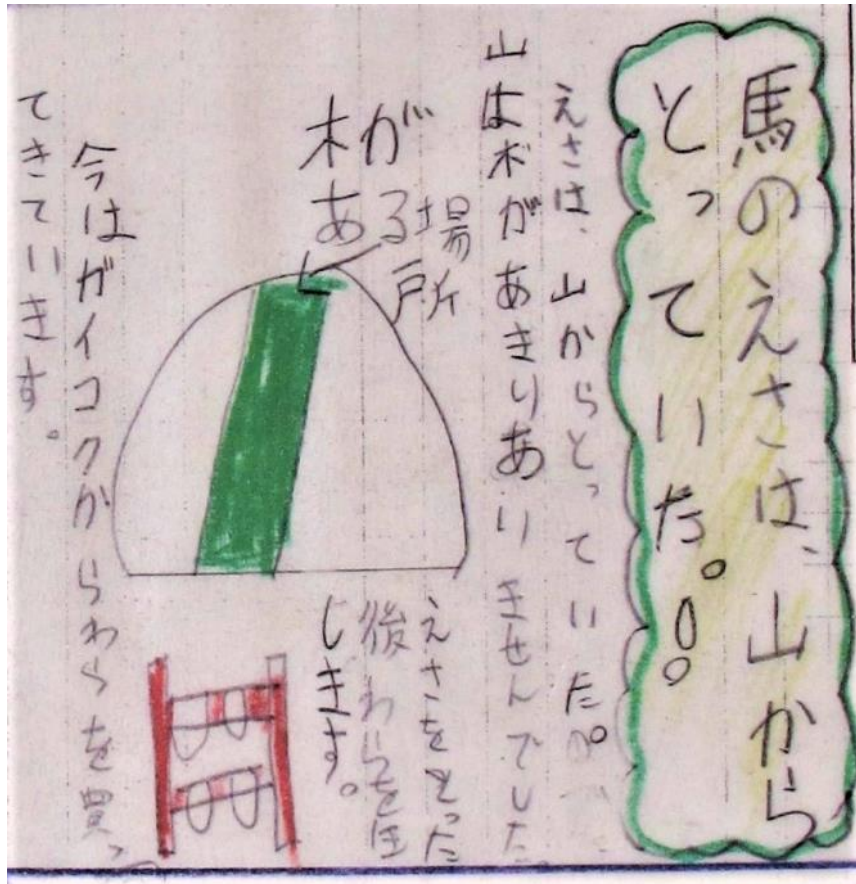 馬のえさは、山から
とっていた。!!
えさは、山からとっていた。
山は木があまりありませんでした
木が
ある場所
えさをとった
後わらをほ
します。
今はガイコクからわらを買っ
てきています。